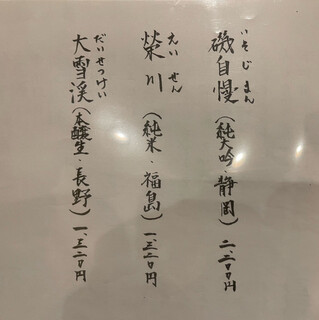 いそじまん
磯自慢(純大吟・静岡)二、二〇〇円
えいせん
榮川(純米・福島)一、三二〇円
だいせっけい
大雪渓(本醸生・長野)一、三二〇円